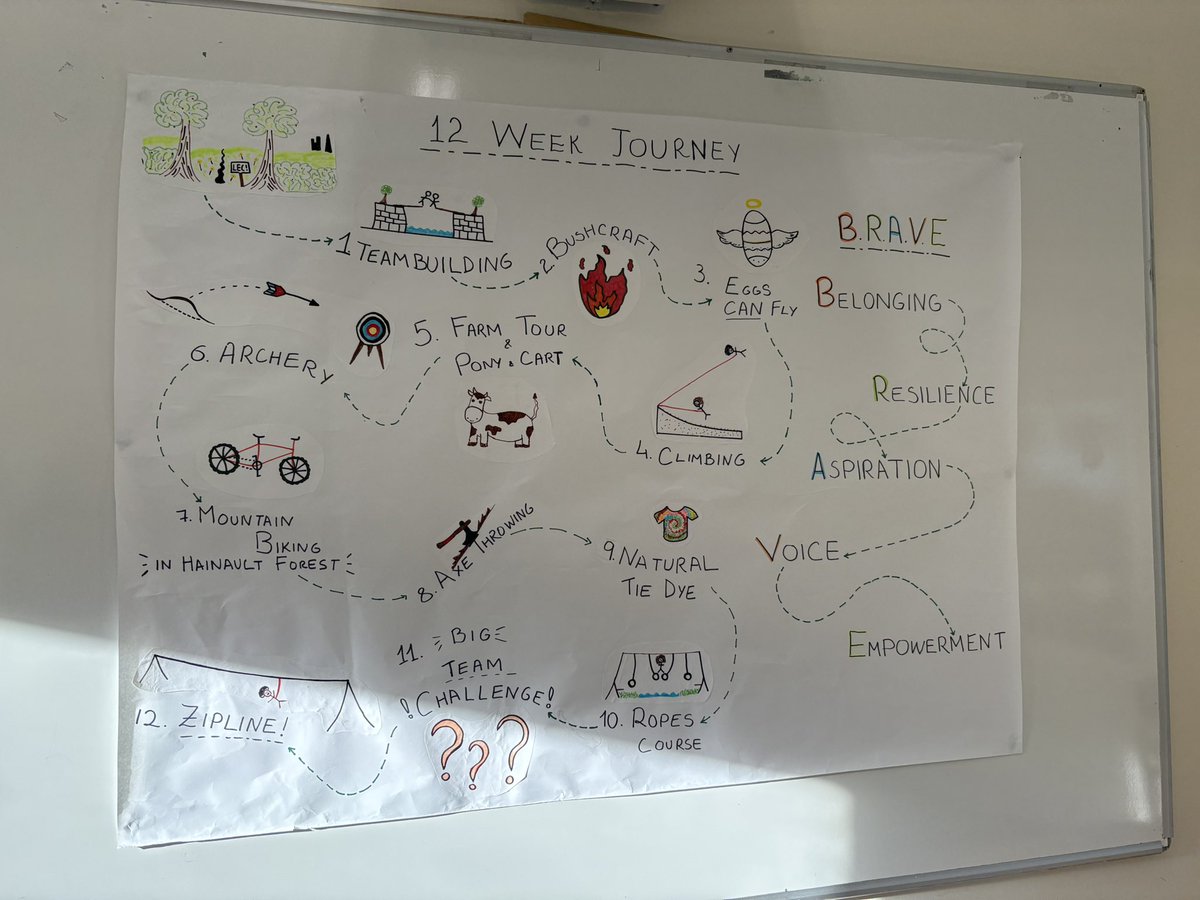 12 WEEK JOURNEY
LEC!
1 TEAMBUILDING
2. BUSHCRAFT
3. EGGS
CAN FLY
4. CLIMBING
5. FARM TOUR
&
PONY & CART
6. ARCHERY
7. MOUNTAIN
BIKING
IN HAINAULT FOREST
8. AXE THROWING
9. NATURAL
TIE DYE
10. ROPES
COURSE
11. BIG
TEAM
! CHALLENGE!
???
12. ZIPLINE!
B.R.A.V.E
BELONGING
RESILIENCE
ASPIRATION
VOICE
EMPOWERMENT